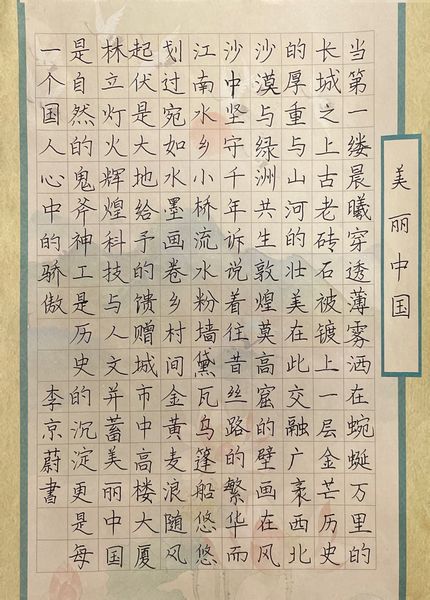 美丽中国
当第一缕晨曦穿透薄雾洒在蜿蜒万里的
长城之上古老砖石被镀上一层金芒历史
的厚重与山河的壮美在此交融广袤西北
沙漠与绿洲共生敦煌莫高窟的壁画在风
沙中坚守千年诉说着往昔丝路的繁华而
江南水乡小桥流水粉墙黛瓦乌篷船悠悠
划过宛如水墨画卷乡村间金黄麦浪随风
起伏是大地给予的馈赠城市中高楼大厦
林立灯火辉煌科技与人文并蓄美丽中国
是自然的鬼斧神工是历史的沉淀更是每
一个国人心中的骄傲 李京蔚书